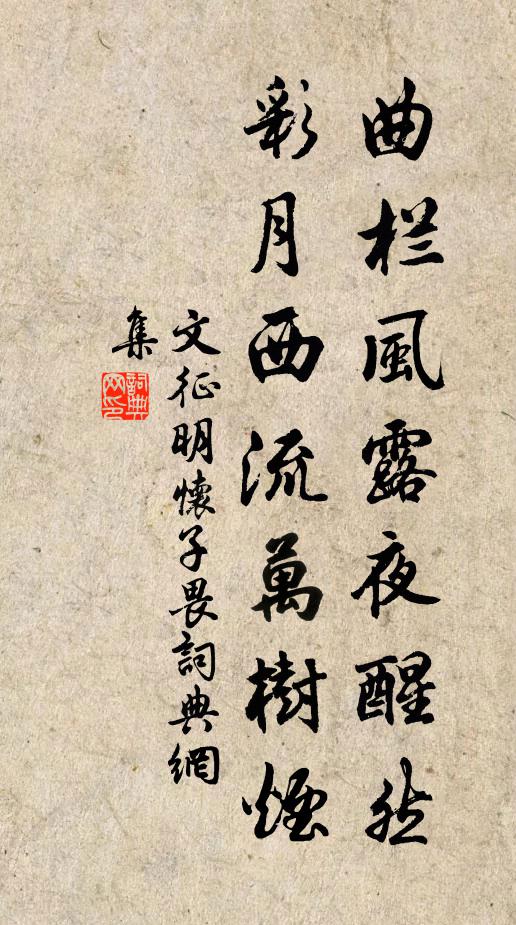 曲栏風露夜醒然
彩月西流萬樹煙
文征明懷子畏詞典網
集
詞典
网印